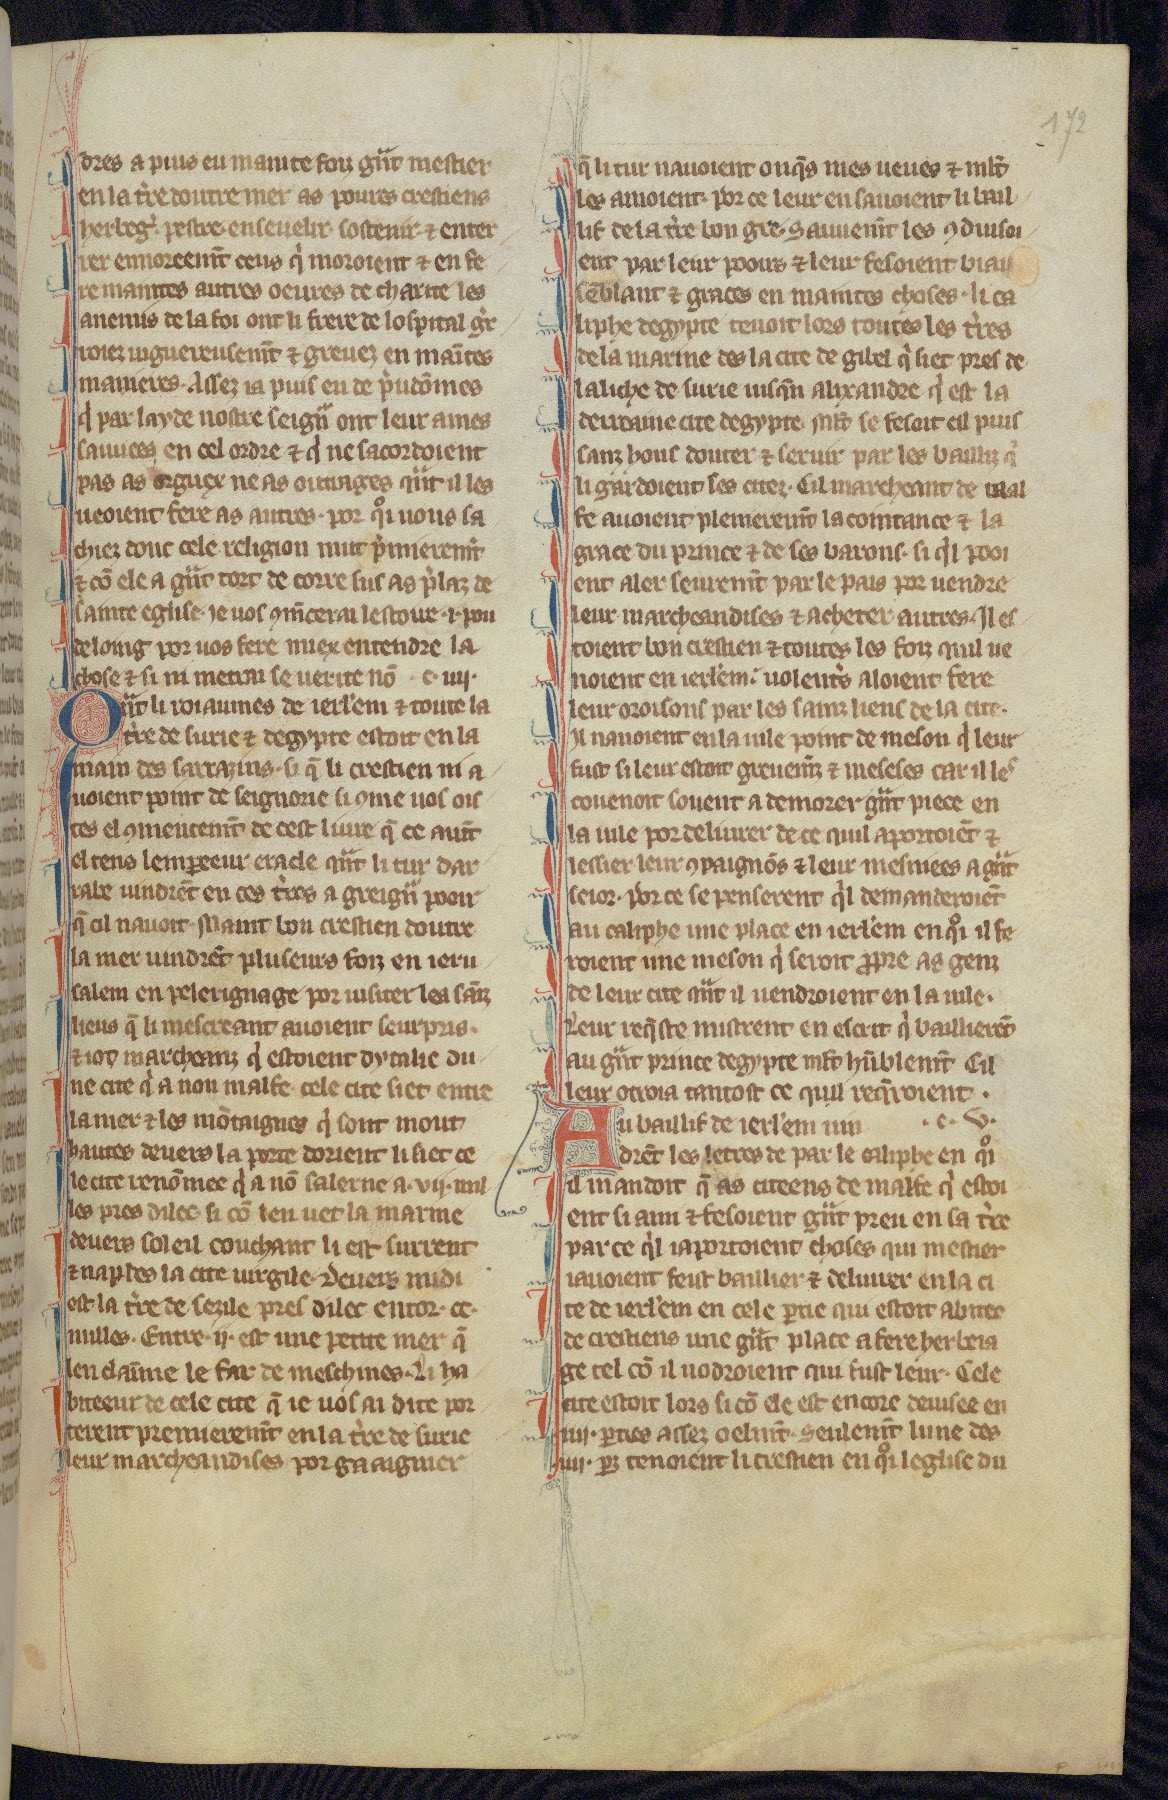 172
dres a puis eu mainte foiz gnt mestier
en la tre doutre mer as poures crestiens
herbegr. pestre. enseuelir. sostenir. ⁊ enter
rer ennoreemt ceus q̇ moroient ⁊ en fe
re maintes autres oeures de charite les
anemis de la foi ont li frere de lospital gr̄
roiez uiguereusemt ⁊ greuez en maītes
manieres. Assez ia puis eu de ṗudōmes
q̇ par layde nostre seigṅ ont leur ames
sauuees en cel ordre ⁊ q̇ ne sacordoient
pas as orguex ne as outrages qn̄t il les
ueoient fere as autres. por qͦi uous sa
chiez donc cele religion mut ṗmieremt
⁊ cō ele a gnt tort de corre sus as p̄laz de
sainte eglise. ie uos ꝯm̄cerai lestoire .i. pou
de loing por uos fere miex entendre la
chose ⁊ si ni metrai se uerite nō .c. iiij.
Qnt li roiaumes de ierl'em ⁊ toute la
tre de surie ⁊ degypte estoit en la
main des sarrazins. si q̄ li crestien ni a
uoient point de seignorie si ꝯme uos ois
tes el ꝯmencemt de cest liure q̄ ce auīt
el tens lempereeur eracle qn̄t li tur dar
rabe uindrēt en ces tres a greigṅ pooir
q̄ cil nauoit. Maint bon crestien doutre
la mer uindrēt pluseurs foiz en ieru
salem en pelerignage por uisiter les saīz
lieus q̄ li mescreant auoient seurpris.
⁊ iot marcheanz q̇ estoient dytalie du
ne cite q̇ a non malfe. cele cite siet entre
la mer ⁊ les mōtaignes q̇ sont mout
hautes deuers la porte dorient li siet ce
le cite renōmee q̇ a nō salerne a .vij. mil
les pres dilec si cō len uet la marine
deuers soleil couchant li est surrent
⁊ naples la cite uirgile. Deuers midi
est la tre de sezile pres dilec entor .cc.
milles. Entre .ij. est une petite mer q̄
len claīme le far de meschines. Li ha
biteeur de cele cite q̄ ie uos ai dite por
terent premieremt en la tre de surie
leur marcheandises por gaaignier
q̄ li tur nauoient onq̄s mes ueues ⁊ ml't
les amoient. por ce leur en sauoient li bail
lif de la tre bon gre. Sauuemt les ꝯduisoi
ent par leur pooirs ⁊ leur fesoient biau
sēblant ⁊ graces en maintes choses. li ca
liphe degypte tenoit lors toutes les tres
de la marine des la cite de gibel q̇ siet pres de
laliche de surie iusqn̄ alixandre q̇ est la
derraine cite degypte. ml't se fesoit cil puis
sanz hons douter ⁊ seruir par les bailliz q̇
li gardoient ses citez. Cil marcheant de mal
fe auoient plenieremt la cointance ⁊ la
grace du prince ⁊ de ses barons. si q̇l pooi
ent aler seuremt par le pais por uendre
leur marcheandises ⁊ acheter autres. Il es
toient bon crestien ⁊ toutes les foiz quil ue
noient en ierl'em uolentrs aloient fere
leur oroisons par les sainz lieus de la cite.
Il nauoient en la uile point de meson q̇ leur
fust si leur estoit greuemz ⁊ meseses car il les
couenoit souent a demorer gnt piece en
la uile por deliurer de ce quil aportoiēt ⁊
lessier leur ꝯpaignōs ⁊ leur mesnees a gnt
seior. Por ce se penserent q̇l demanderoiēt
au caliphe une place en ierl'em en qͦi il fe
roient une meson q̇ seroit ꝓpre as genz
de leur cite qn̄t il uendroient en la uile.
Leur req̄ste mistrent en escrit q̇ baillierēt
au gnt prince degypte ml't hūblemt Cil
leur otroia tantost ce quil req̄roient.
Au baillif de ierl'em uin .c. V.
drēt les letres de par le caliphe en qͦi
il mandoit q̄ as citeens de malfe q̇ estoi
ent si ami ⁊ fesoient gnt preu en sa tre
par ce q̇l iaportoient choses qui mestier
iauoient feist baillier ⁊ deliurer en la ci
te de ierl'em en cele ꝑtie qui estoit abitee
de crestiens une gnt place a fere herbeia
ge tel cō il uodroient qui fust leur. Cele
cite estoit lors si cō ele est encore deuisee en
iiij. ꝑties assez oelmt. Seulemt lune des
iiij. ꝑz tenoient li crestien en qͦi leglise du